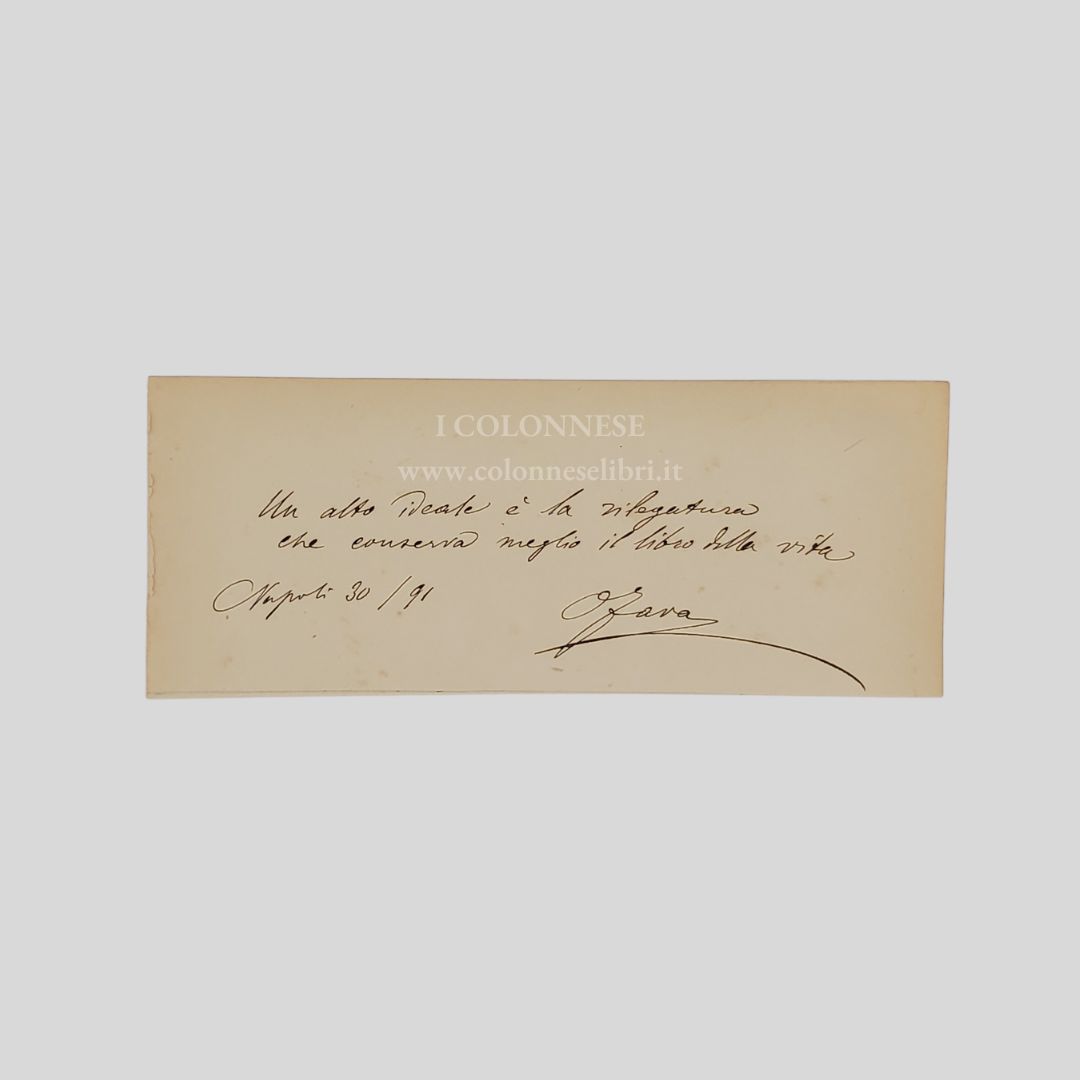 I COLONNESE
www.colonneselibri.it
Un alto ideale è la rilegatura
che conserva meglio il libro della vita
Napoli 30 / 91
O Fava